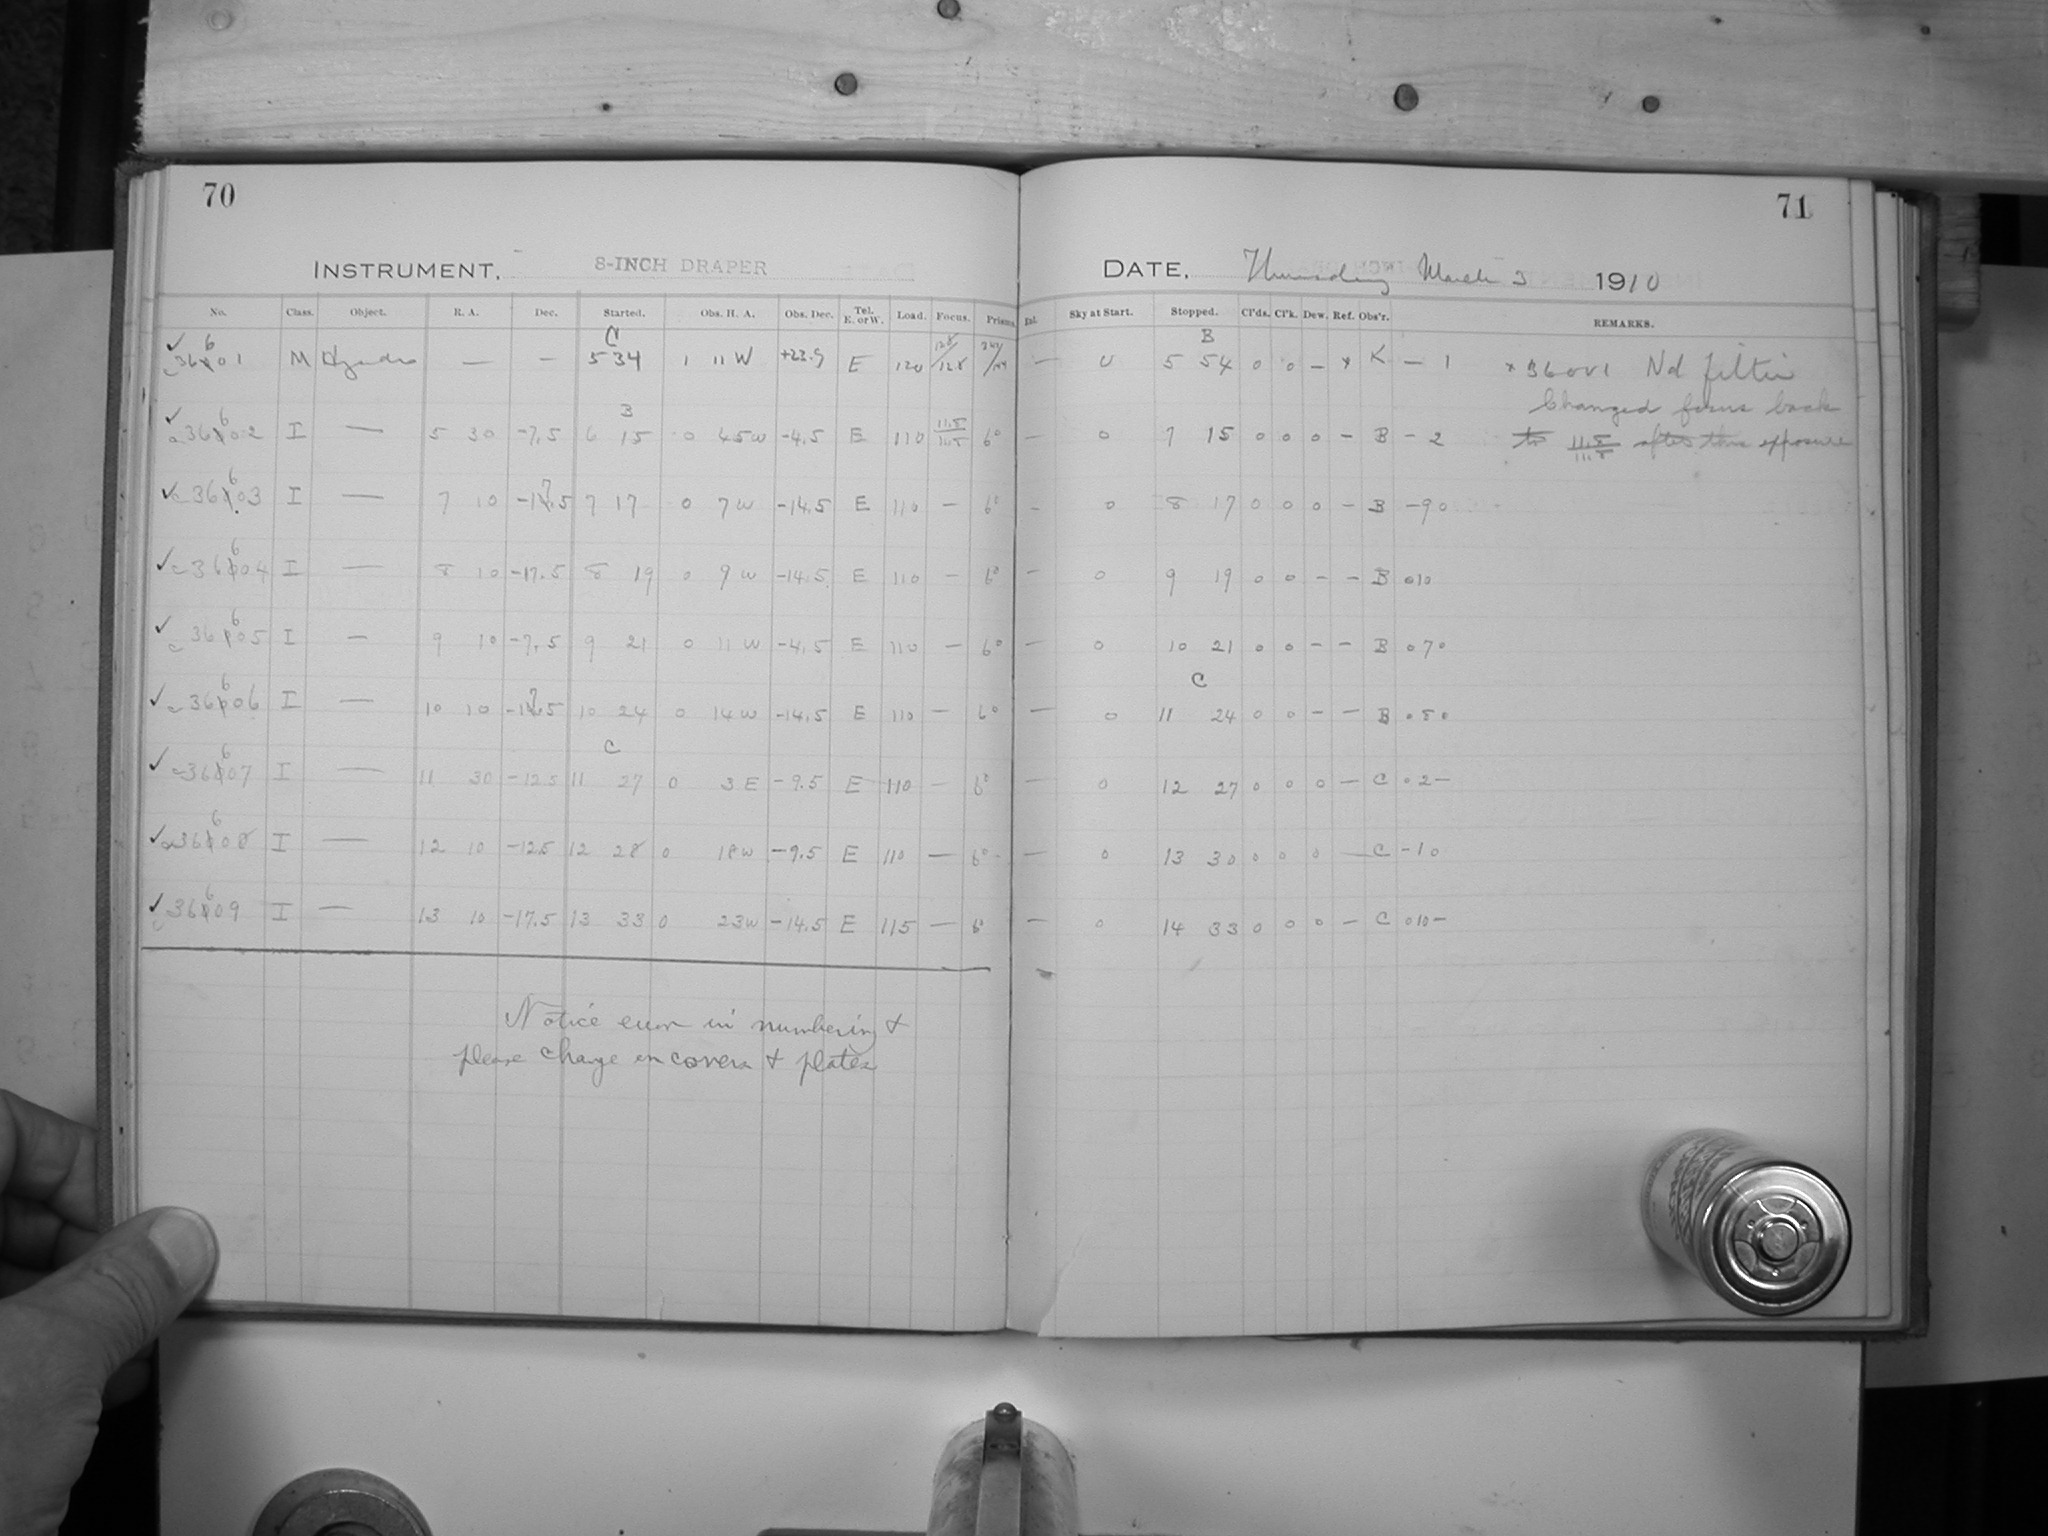 70
INSTRUMENT. 8-INCH DRAPER
No. Class. Object. R. A. Dec. Started. Obs. H. A. Obs. Dec. Tel. E. or W. Load. Focus. Prisms.
C
36601 M — — 5 34 1 11 W +23.9 E 120 12.8/12.8
B
36602 I — 5 30 -7.5 6 15 0 45 W -4.5 E 110 11.5/11.5 6°
36603 I — 7 10 -17.5 7 17 0 7 W -14.5 E 110 — 6°
c 36604 I — 8 10 -17.5 8 19 0 9 W -14.5 E 110 — 6°
c 36605 I — 9 10 -7.5 9 21 0 11 W -4.5 E 110 — 6°
c 36606 I — 10 10 -17.5 10 24 0 14 W -14.5 E 110 — 6°
C
c 36607 I — 11 30 -12.5 11 27 0 3 E -9.5 E 110 — 6°
36608 I — 12 10 -12.5 12 28 0 18 W -9.5 E 110 — 6°
c 36609 I — 13 10 -17.5 13 33 0 23 W -14.5 E 115 — 6°
Notice error in numbering &
please change on covers & plates
71
DATE. Thursday March 3 1910
Sky at Start. Stopped. Cl'ds. Cl'k. Dew. Ref. Obs'r. REMARKS.
B
— 0 5 54 0 0 — × K — 1 × 36001 filter
Changed focus back
— 0 7 15 0 0 0 — B — 2 to 11.5/11.5 after this exposure
— 0 8 17 0 0 0 — B — 9 0
— 0 9 19 0 0 — — B 0 10
— 0 10 21 0 0 — — B 0 7 0
C
— 0 11 24 0 0 — — B 0 5 0
— 0 12 27 0 0 0 — C 0 2 —
— 0 13 30 0 0 0 — C — 1 0
— 0 14 33 0 0 0 — C 0 10 —